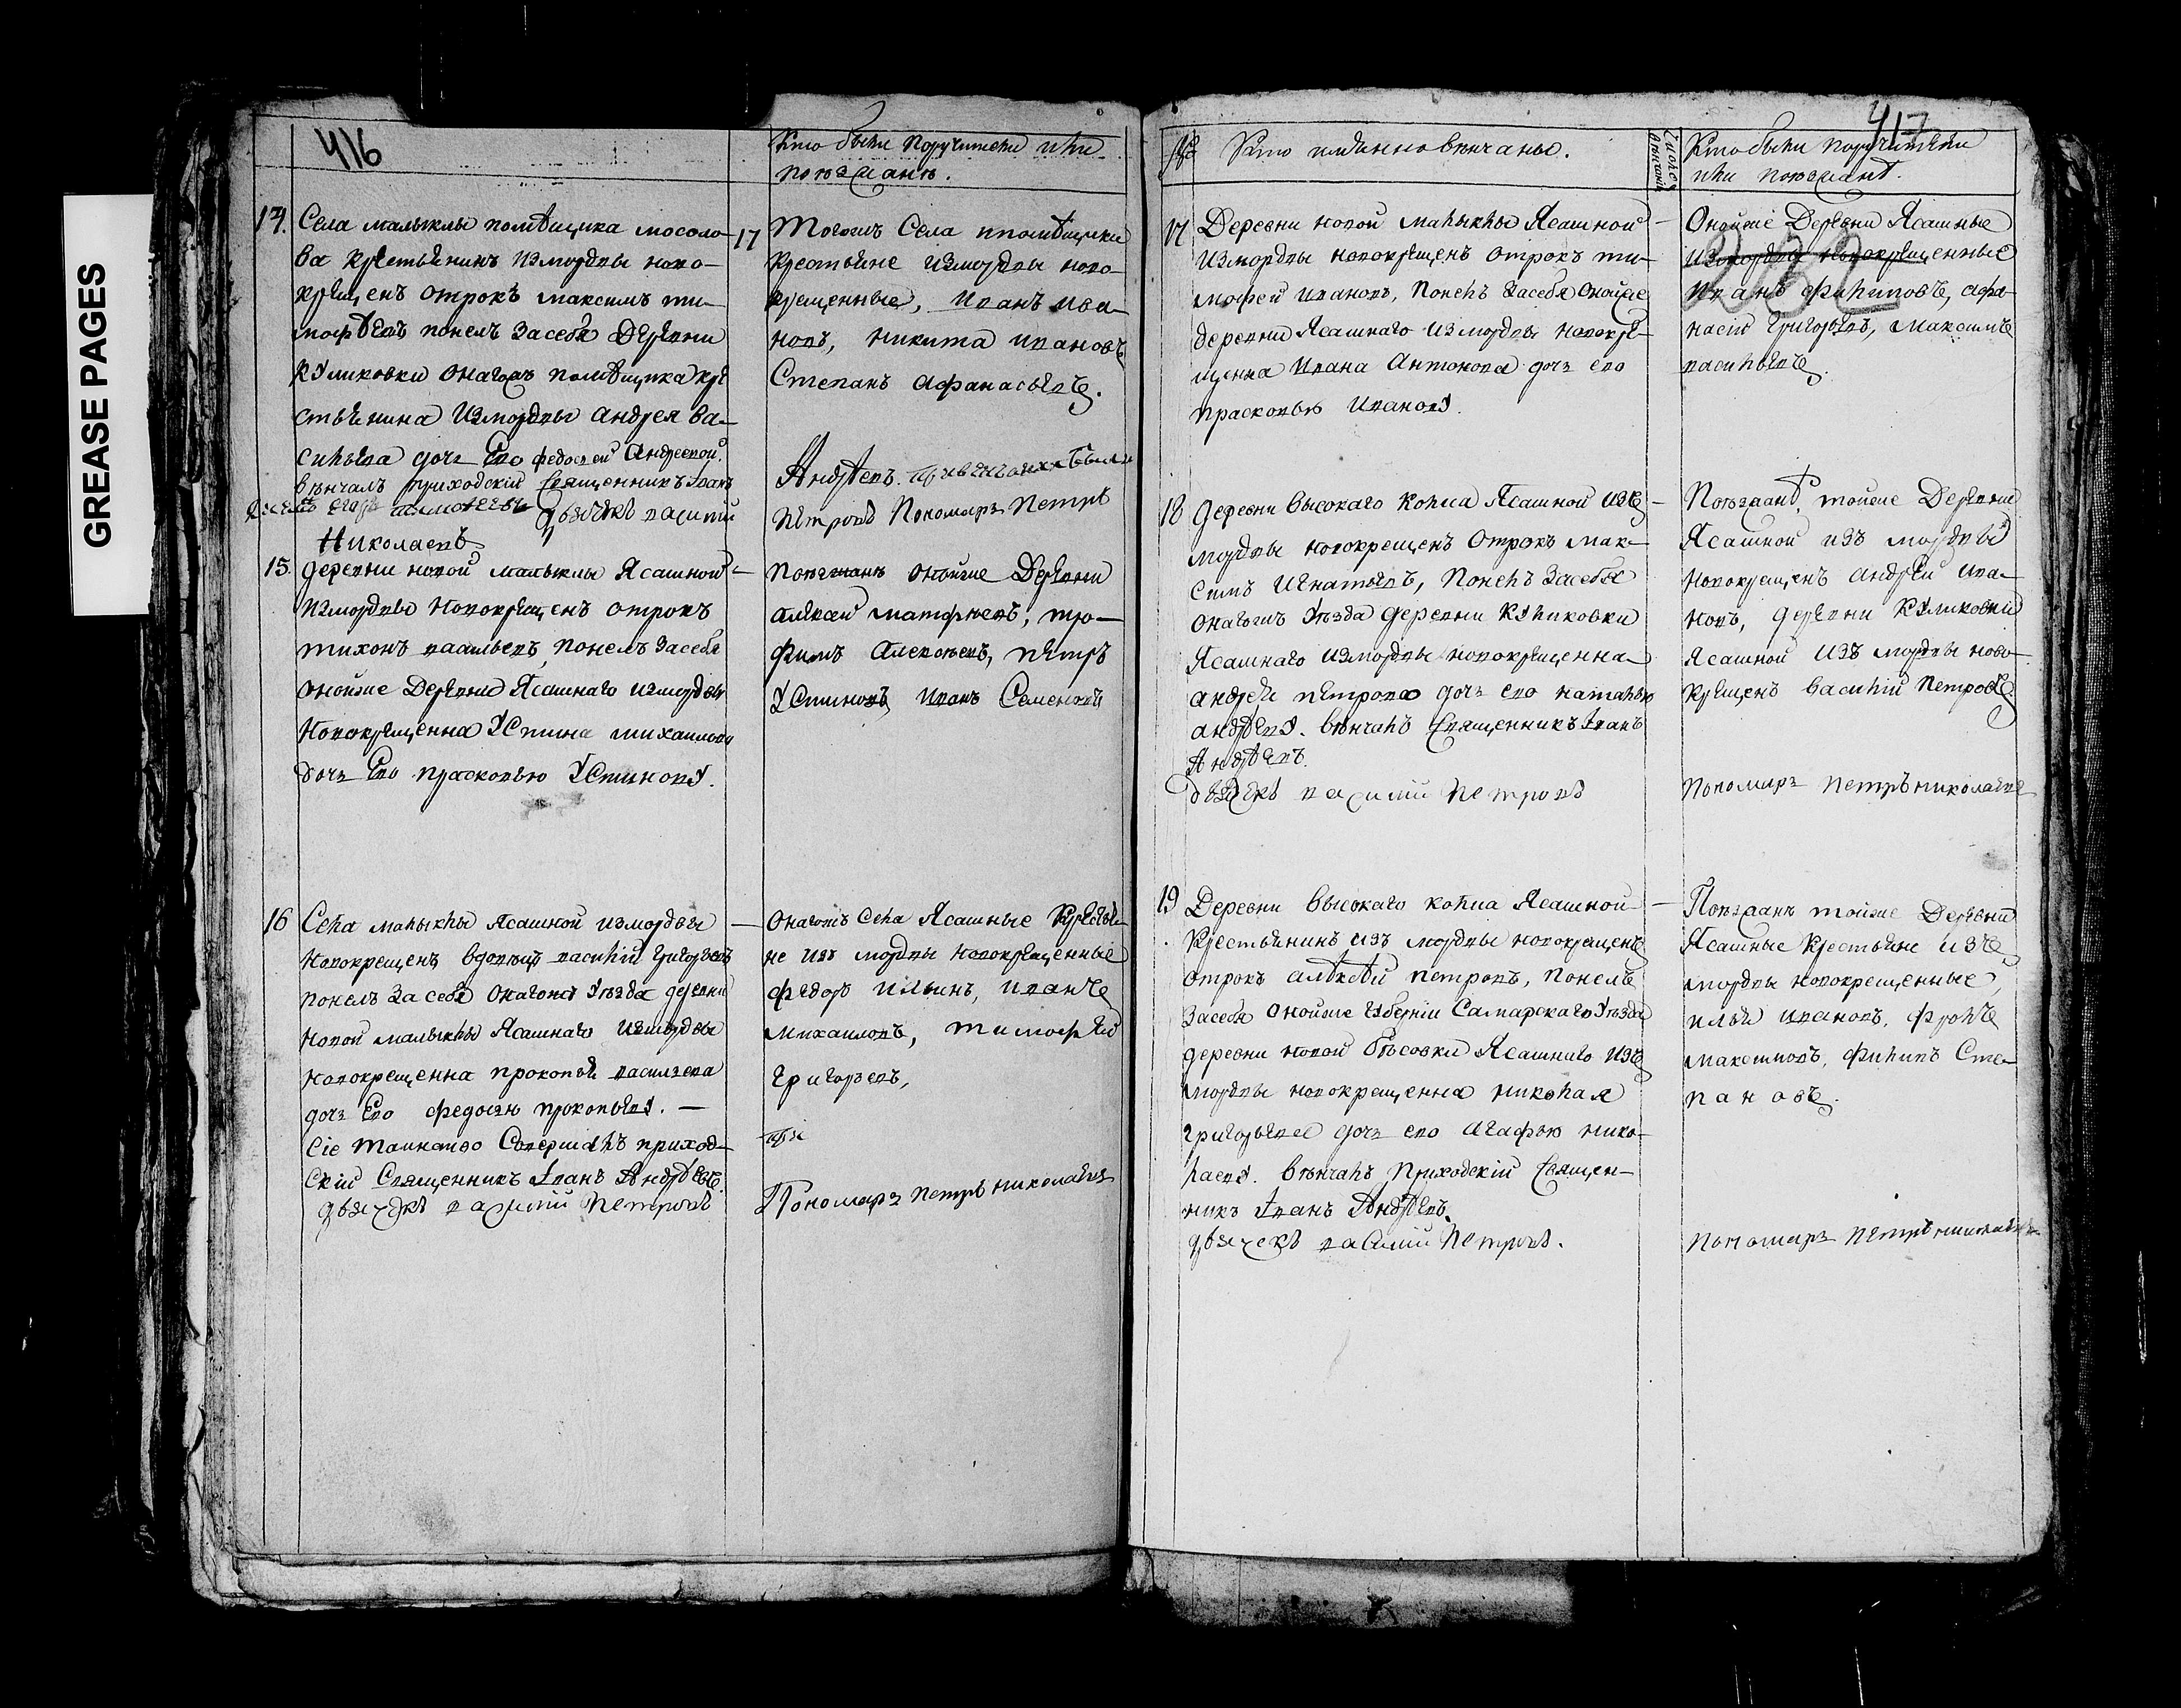 GREASE PAGES
416
Кто были поручители или
поѣзжанѣ.
14. Села малыклы помѣщика мосоло-
ва крестьянинъ измордвы ново-
крещенъ отрокъ максимъ ти-
мофѣевъ понелъ засебя Деревни
Куликовки онагожъ помѣщика кре
стьянина измордвы андрея ва-
сильева дочь Ево федосьей Андреевой.
вѣнчалъ приходский священникъ Іванъ
дьячекъ василий
Николаевъ
17
Тогожъ Села помѣщика
крестьяне измордвы ново-
крещенные, иванъ ива-
новъ, никита ивановъ
Степанъ афанасьевъ.
Андрѣевъ.
Петровъ Пономарь Петръ
15. деревни новой малыклы Ясашной
измордвы новокрещенъ отрокъ
тихонъ васильевъ, понелъ засебя
оноиже Деревни Ясашнаго измордвы
новокрещенна Устина михаилова
дочь Ево прасковью Устинову.
поѣзжанѣ оноиже Деревни
алѣксей матфѣевъ, тро-
фимъ алексѣевъ, петръ
Устиновъ, иванъ Семеновъ
16 Села малыклы Ясашной измордвы
новокрещенъ вдовецъ василий григорьевъ
понелъ за себя онагожъ уѣзда деревни
новой малыклы Ясашнаго измордвы
новокрещенна прокопья васильева
дочь Ево федосью прокопьеву.
Сіе таинство Совершалъ приход-
скій Священникъ Іванъ Андрѣевъ.
дьячекъ василий Петровъ
онагожъ села Ясашные крестья-
не изъ мордвы новокрещенные
федоръ ильинъ, иванъ
михаиловъ, тимофей
григорьевъ,
при
Пономарь петръ николаевъ
417
232
№ Кто имянно вѣнчаны.
Число вѣнчания
Кто были поручители
или поѣзжанѣ.
17 Деревни новой малыклы Ясашной
измордвы новокрещенъ отрокъ ти-
мофей ивановъ, понелъ засебя оноиже
деревни Ясашнаго измордвы новокре-
щенна ивана антонова дочь ево
прасковью иванову.
Оноиже Деревни Ясашные
измордвы новокрещенные
иванъ филиповъ, афа-
насий григорьевъ, максимъ
васильевъ.
18 деревни высокаго колка Ясашной изъ
мордвы новокрещенъ отрокъ мак-
симъ игнатьевъ, понелъ засебя
онагожъ уѣзда деревни Куликовки
Ясашнаго измордвы новокрещенна
андрея петрова дочь ево наталью
андрѣеву. вѣнчалъ Священникъ Іванъ
Андрѣевъ.
дьячекъ василий Петровъ
Поѣзжанѣ, тоиже Деревни
Ясашной изъ мордвы
новокрещенъ андрей ива-
новъ, деревни Куликовки
Ясашной изъ мордвы ново-
крещенъ василий петровъ
Пономарь петръ николаевъ
19 Деревни высокаго колка Ясашной
крестьянинъ изъ мордвы новокрещенъ
отрокъ алѣксѣй петровъ, понелъ
засебя оноиже губерніи Самарскаго уѣзда
деревни новой бѣсовки Ясашнаго изъ
мордвы новокрещенна николая
григорьева дочь ево агафью нико-
лаеву. вѣнчалъ приходскій Священ-
никъ Іванъ Андрѣевъ.
дьячекъ василий Петровъ.
Поѣзжанѣ тоиже Деревни
Ясашные крестьяне изъ
мордвы новокрещенные,
илья ивановъ, фролъ
максимовъ, филипъ Сте-
пановъ.
Пономарь петръ николаевъ